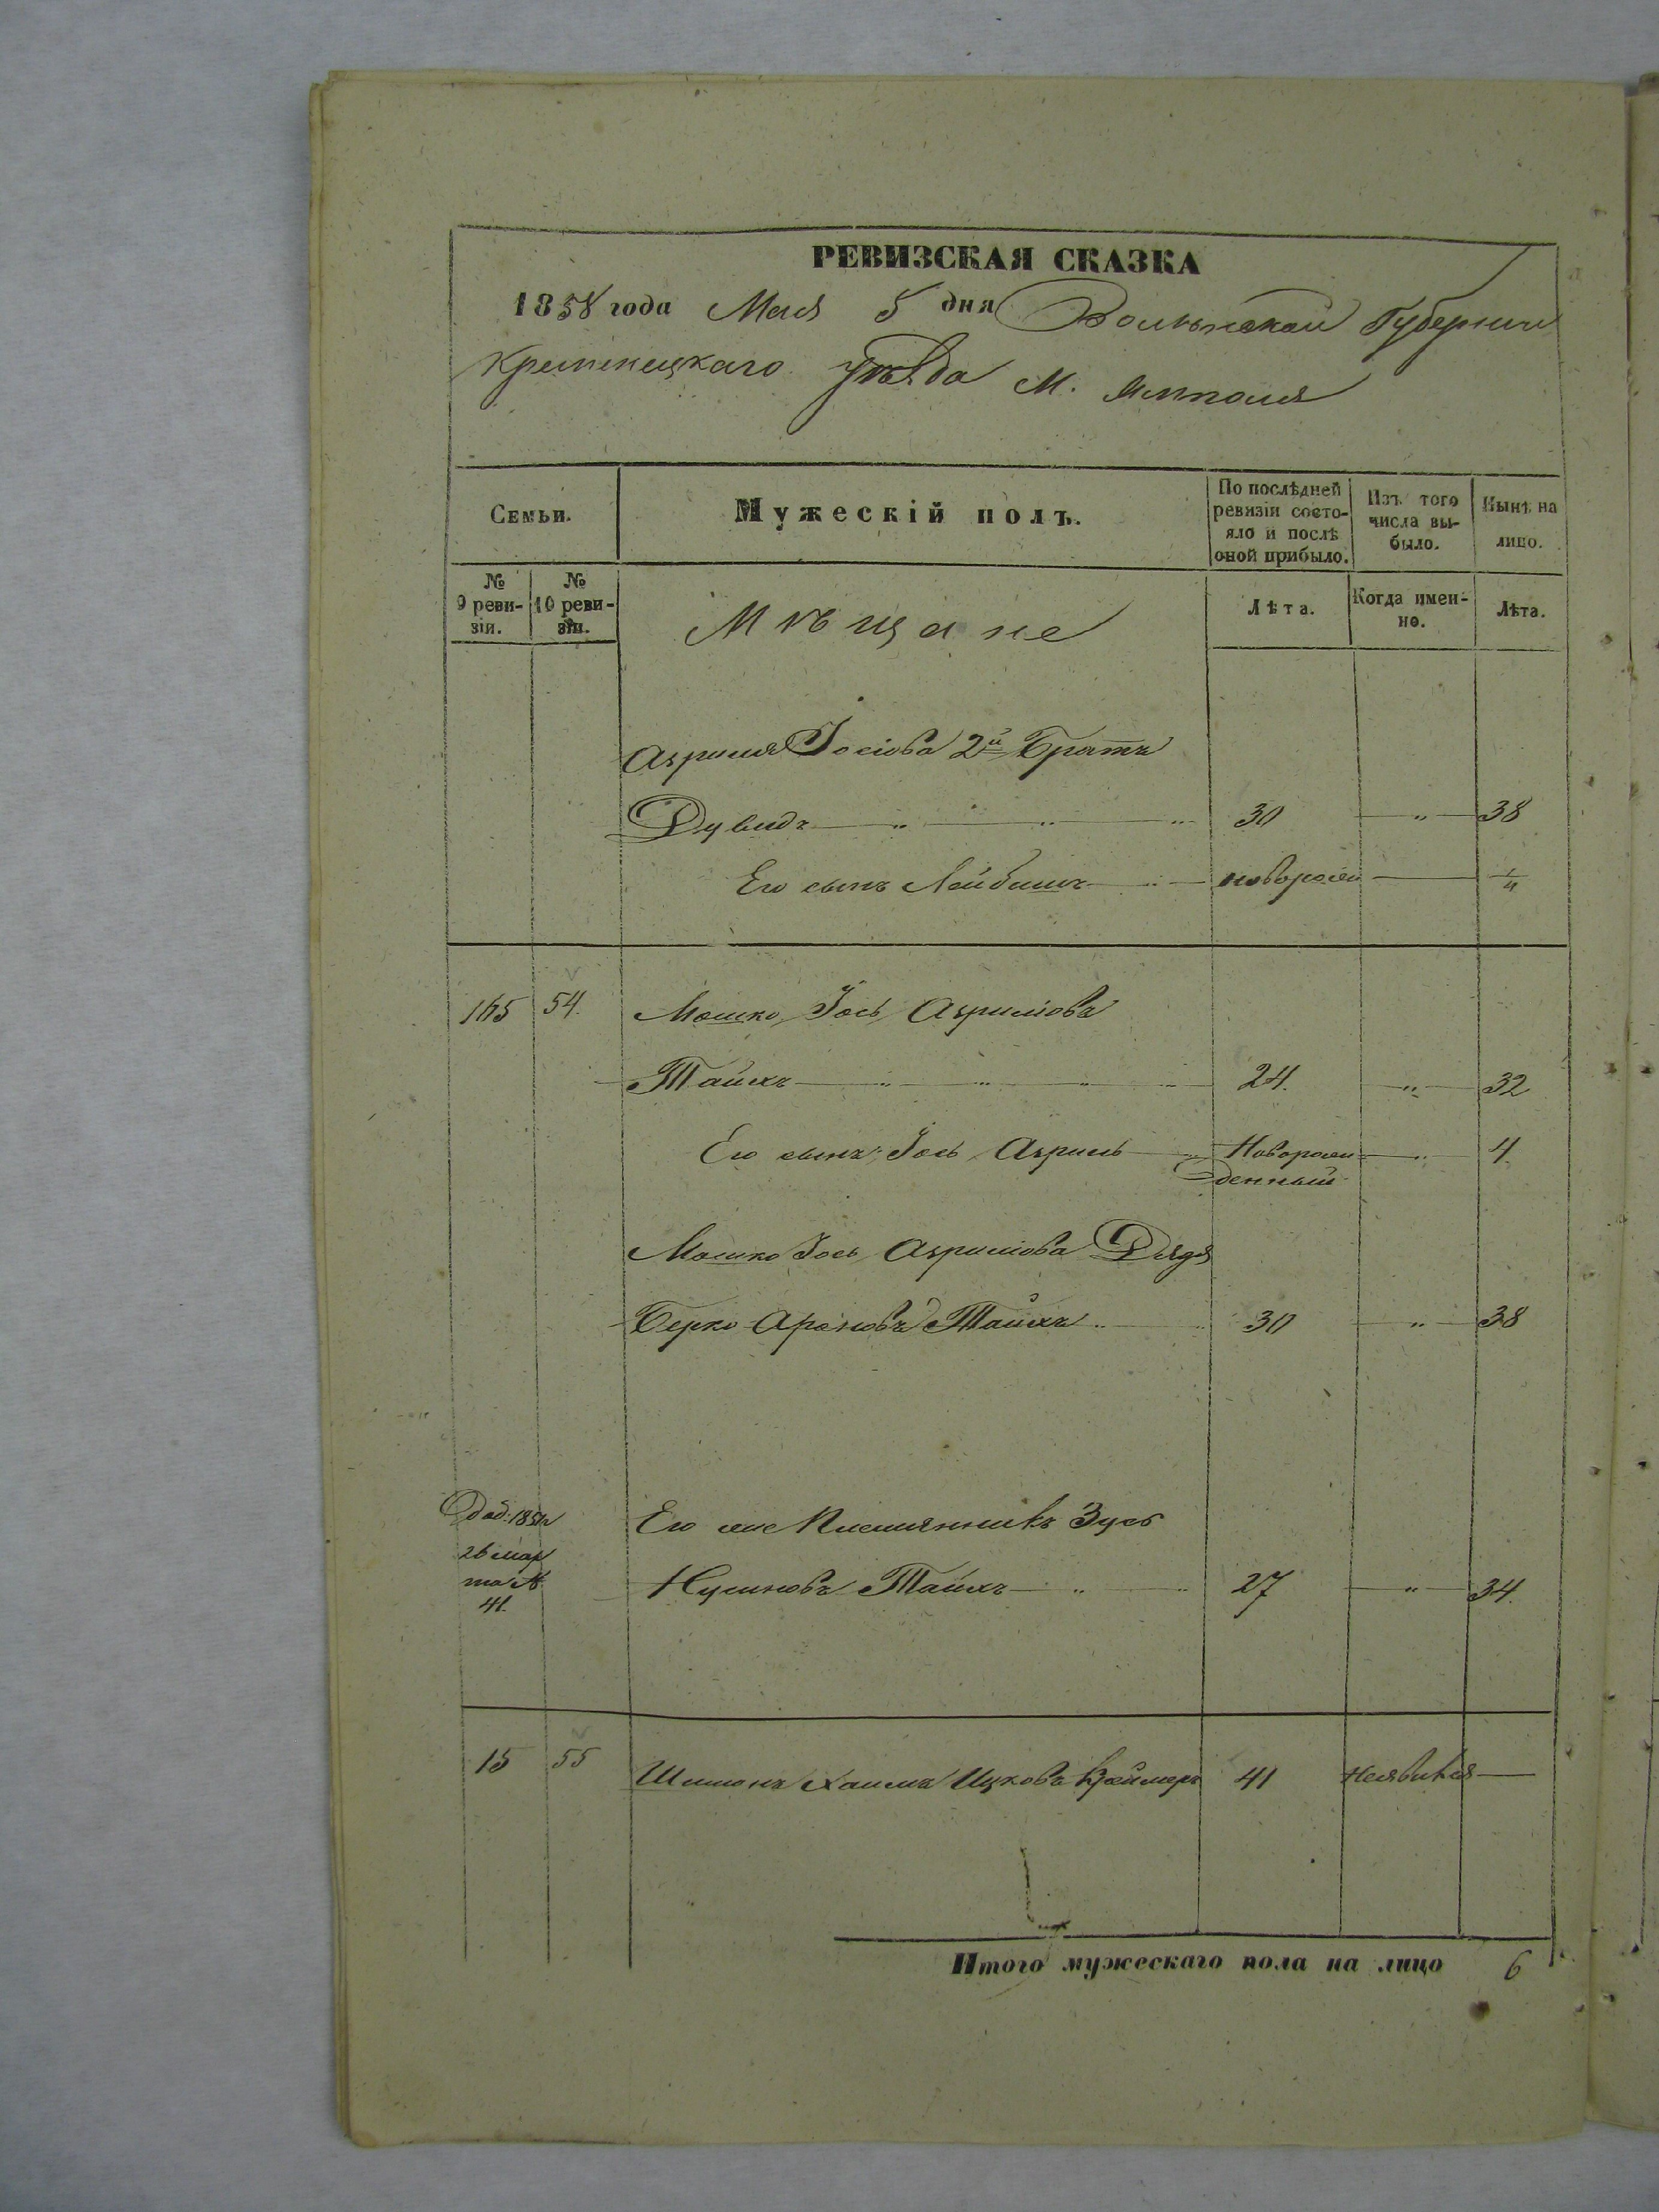 РЕВИЗСКАЯ СКАЗКА
1858 года Мая 5 дня Волынской Губернии
Кременецкаго уѣзда М. Ямполя
Семьи.
Мужескій полъ.
По послѣдней ревизіи состо-яло и послѣ оной прибыло.
Изъ того числа вы-было.
Нынѣ на лицо.
№ 9 реви-зіи.
№ 10 реви-зіи.
Мѣщане
Лѣта.
Когда имен-но.
Лѣта.
Азриля Іосіова 2й Братъ
Дувидъ 30 " 38
Его сынъ Лейбишъ новорож
165 54. Мошко Іось Азриліовъ
Тайхъ 24. " 32
Его сынъ Іось Азриль Новорож 4.
денный
Мошко Іось Азриліова Дядя
Берко Ароновъ Тайхъ 30 " 38
Доб. 1851
26 мар
та №
41.
Его же Племянникъ Зусь
Нусиновъ Тайхъ 27 " 34.
15 55 Шимонъ Хаимъ Ицковъ Креймеръ 41 Неявился
Итого мужескаго пола на лицо 6